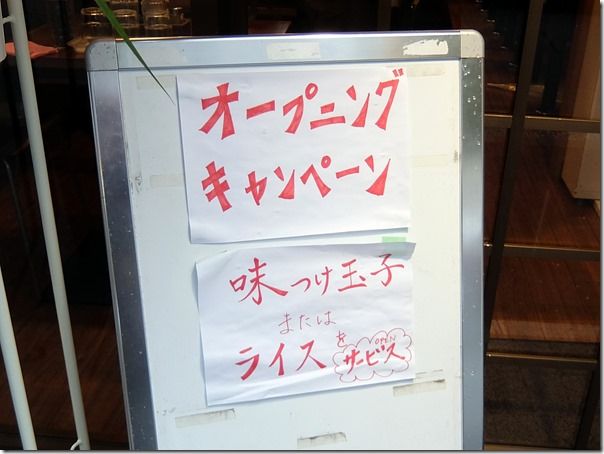 オープニング
キャンペーン
味つけ玉子
または
ライスを
OPEN
サービス